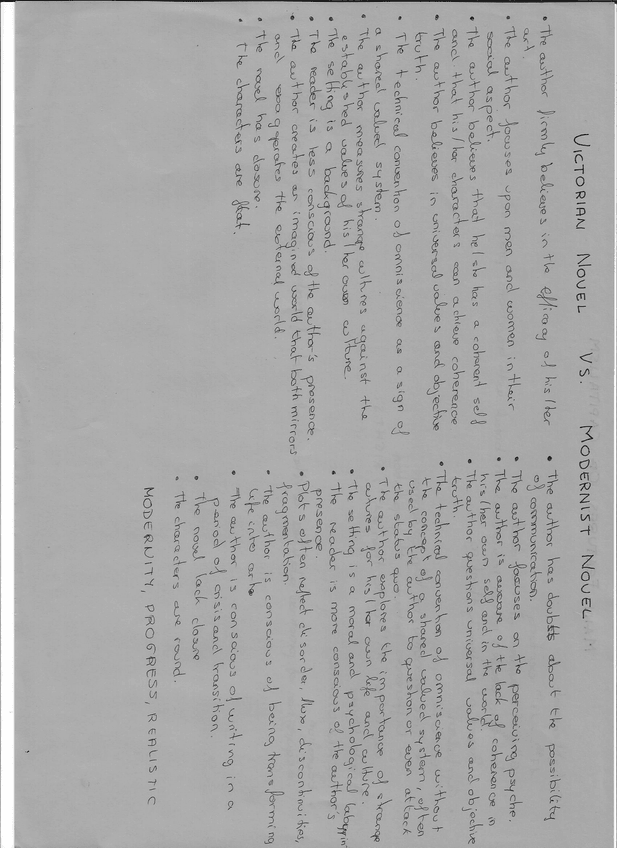 VICTORIAN NOVEL VS. MODERNIST NOVEL
• The author firmly believes in the efficacy of his/her
art.
• The author focuses upon men and women in their
social aspect.
• The author believes that he/she has a coherent self
and that his/her characters can achieve coherence
• The author believes in universal values and objective
truth.
• The technical convention of omniscience as a sign of
a shared valued system.
• The author measures strange cultures against the
established values of his/her own culture.
• The setting is a background.
• The reader is less conscious of the author's presence.
• The author creates an imagined world that both mirrors
and exaggerates the external world.
• The novel has closure.
• The characters are flat.
• The author has doubts about the possibility
of communication.
• The author focuses on the perceiving psyche.
• The author is aware of the lack of coherence in
his/her own self and in the world.
• The author questions universal values and objective
truth.
• The technical convention of omniscience without
the concept of a shared valued system, often
used by the author to question or even attack
the status quo.
• The author explores the importance of strange
cultures for his/her own life and culture.
• The setting is a moral and psychological
• The reader is more conscious of the author's
presence.
• Plots often reflect disorder, flux, discontinuities,
fragmentation.
• The author is conscious of being transforming
life into art.
• The author is conscious of writing in a
period of crisis and transition.
• The novel lack closure
• The characters are round.
MODERNITY, PROGRESS, REALISTIC